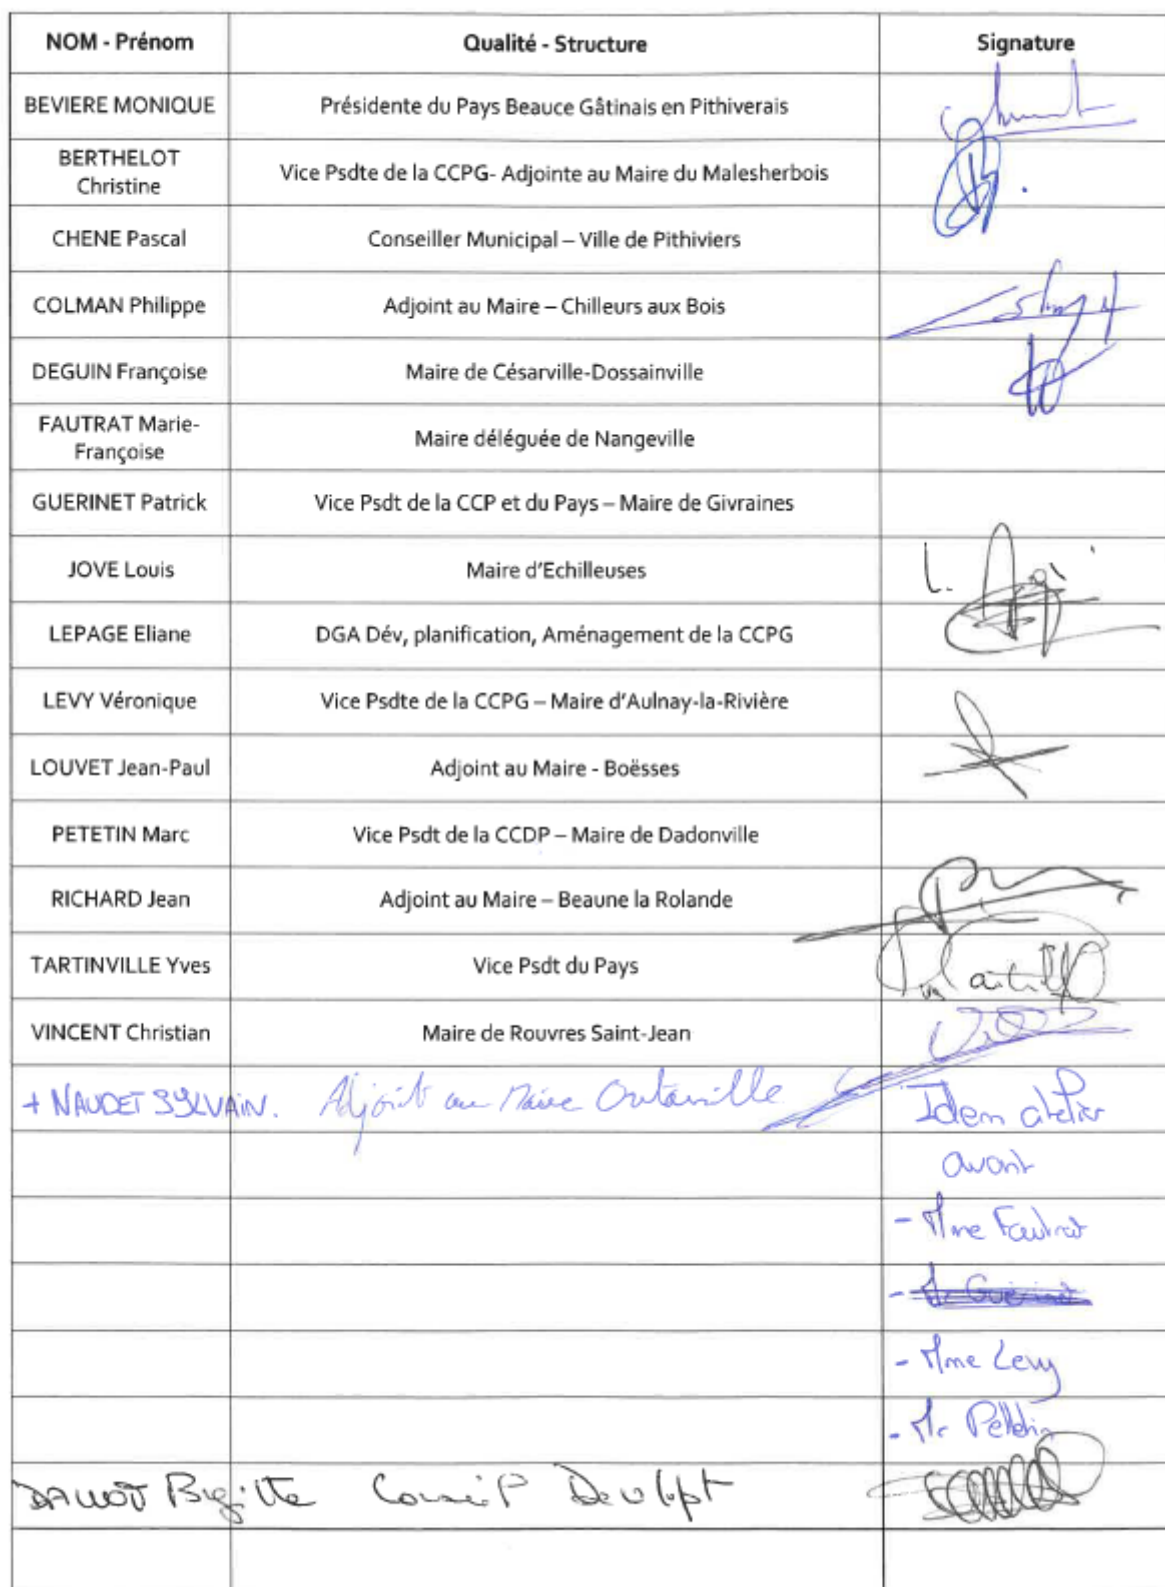 NOM - Prénom Qualité - Structure Signature
BEVIERE MONIQUE Présidente du Pays Beauce Gâtinais en Pithiverais
BERTHELOT
Christine Vice Psdte de la CCPG- Adjointe au Maire du Malesherbois
CHENE Pascal Conseiller Municipal – Ville de Pithiviers
COLMAN Philippe Adjoint au Maire – Chilleurs aux Bois
DEGUIN Françoise Maire de Césarville-Dossainville
FAUTRAT Marie-
Françoise Maire déléguée de Nangeville
GUERINET Patrick Vice Psdt de la CCP et du Pays – Maire de Givraines
JOVE Louis Maire d'Echilleuses
LEPAGE Eliane DGA Dév, planification, Aménagement de la CCPG
LEVY Véronique Vice Psdte de la CCPG – Maire d'Aulnay-la-Rivière
LOUVET Jean-Paul Adjoint au Maire - Boësses
PETETIN Marc Vice Psdt de la CCDP – Maire de Dadonville
RICHARD Jean Adjoint au Maire – Beaune la Rolande
TARTINVILLE Yves Vice Psdt du Pays
VINCENT Christian Maire de Rouvres Saint-Jean
+ NAUDET SYLVAIN. Adjoint au Maire Outarville Idem atelier
avant
- Mme Fautrat
- Mr Guérinet
- Mme Levy
- Mr
Brigitte